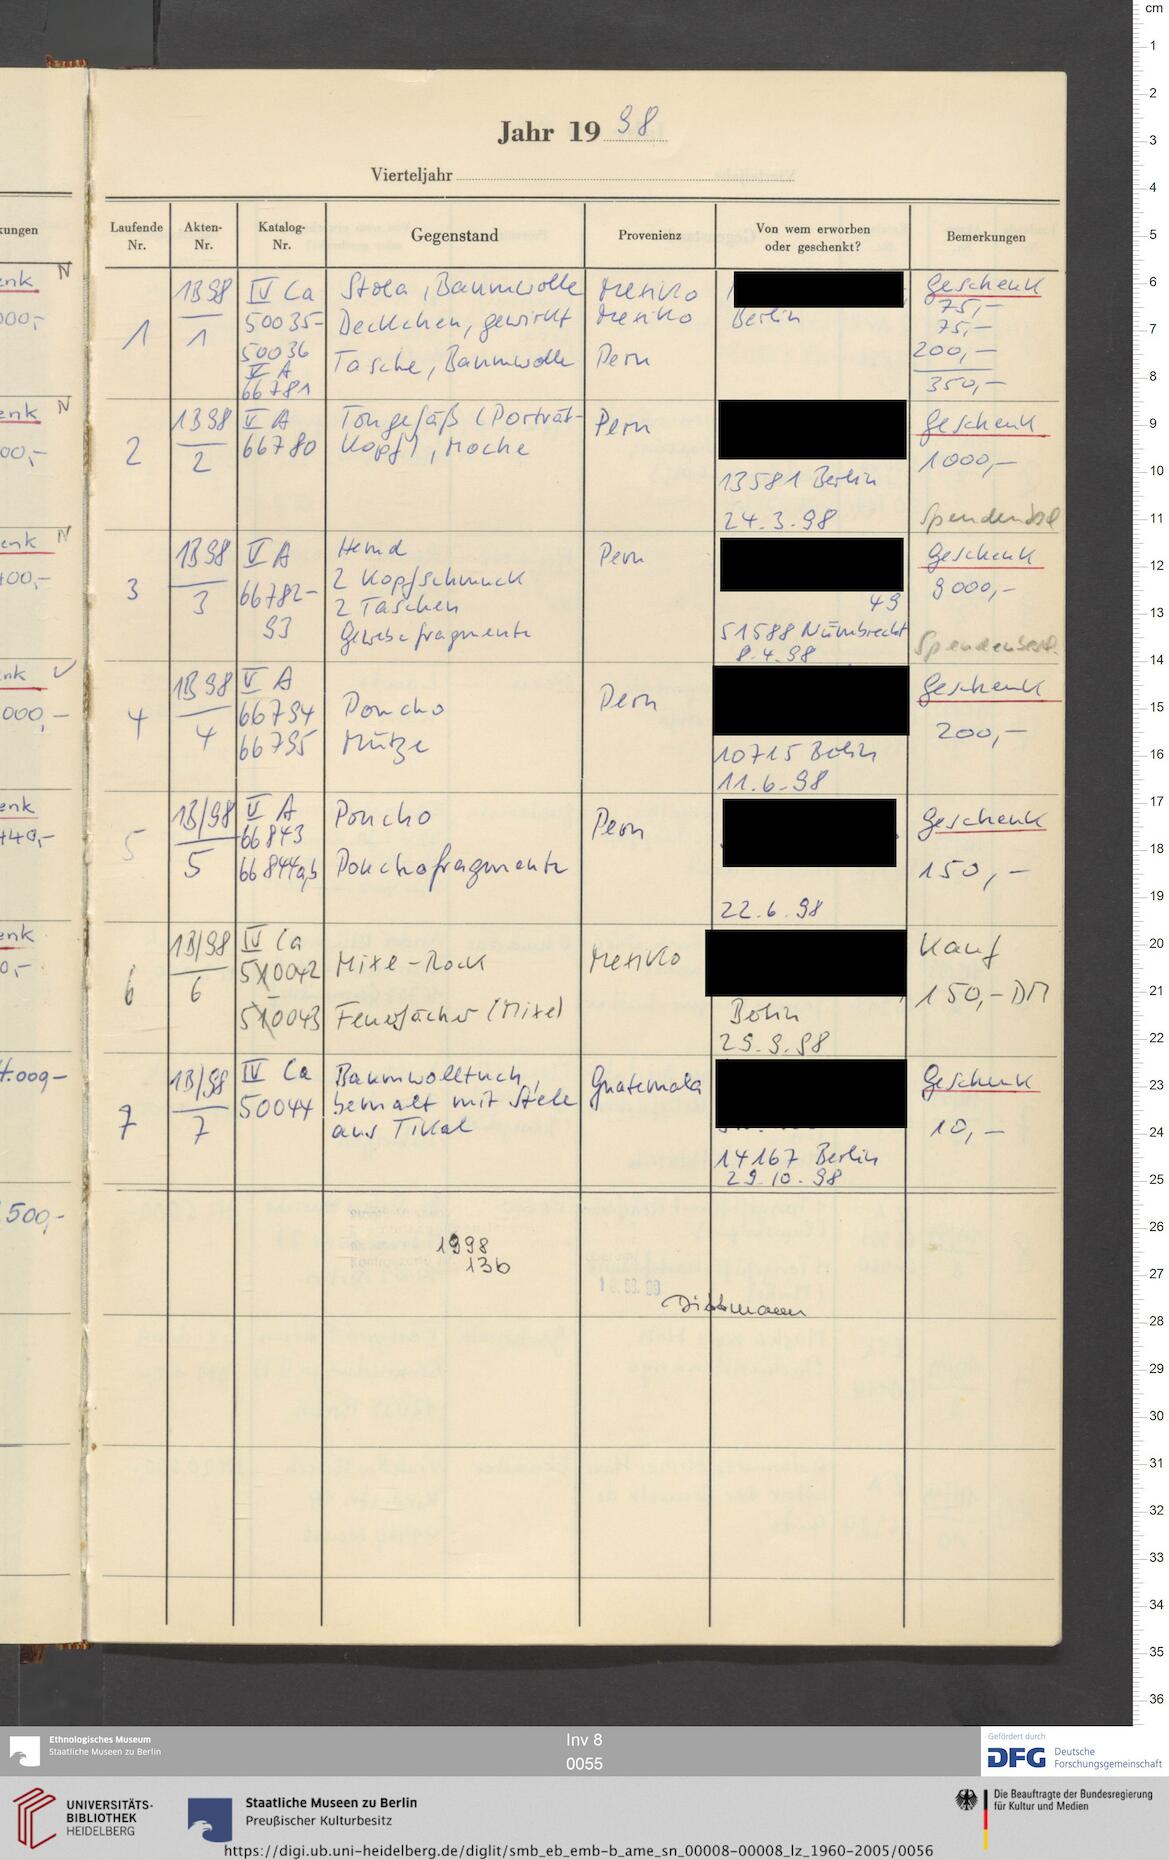 Jahr 19 98
Vierteljahr
Laufende Nr.
Akten-Nr.
Katalog-Nr.
Gegenstand
Provenienz
Von wem erworben oder geschenkt?
Bemerkungen
kungen
enk N
000,-
enk N
00,-
enk N
400,-
nk
000,-
enk
440,-
enk
0,-
4.000-
500,-
1
1B98
1
IV Ca
50035-
50036
V A
66781
Stola, Baumwolle
Deckchen, gewirkt
Tasche, Baumwolle
Mexiko
Mexiko
Peru
Berlin
Geschenk
75,-
75,-
200,-
350,-
2
1B98
2
V A
66780
Tongefäß (Porträt-
kopf), Moche
Peru
13581 Berlin
24.3.98
Geschenk
1000,-
3
1B98
3
V A
66782-
93
Hemd
2 Kopfschmuck
2 Taschen
Gewebefragmente
Peru
49
51588 Nümbrecht
8.4.98
Geschenk
9000,-
4
1B98
4
V A
66794
66795
Poncho
Mütze
Peru
10715 Berlin
11.6.98
Geschenk
200,-
5
1B/98
5
V A
66843
66844a,b
Poncho
Ponchofragmente
Peru
22.6.98
Geschenk
150,-
6
1B/98
6
IV Ca
510042
510043
Mixe-Rock
Feuerfächer (Mixe)
Mexiko
Berlin
29.9.98
Kauf
150,-DM
7
1B/98
7
IV Ca
50044
Baumwolltuch,
bemalt mit Stele
aus Tikal
Guatemala
14167 Berlin
29.10.98
Geschenk
10,-
1998
136
Dittmann
cm
1
2
3
4
5
6
7
8
9
10
11
12
13
14
15
16
17
18
19
20
21
22
23
24
25
26
27
28
29
30
31
32
33
34
35
36
Ethnologisches Museum
Staatliche Museen zu Berlin
Inv 8
0055
Gefördert durch
DFG Deutsche
Forschungsgemeinschaft
UNIVERSITÄTS-
BIBLIOTHEK
HEIDELBERG
Staatliche Museen zu Berlin
Preußischer Kulturbesitz
Die Beauftragte der Bundesregierung
für Kultur und Medien
https://digi.ub.uni-heidelberg.de/diglit/smb_eb_emb-b_ame_sn_00008-00008_lz_1960-2005/0056